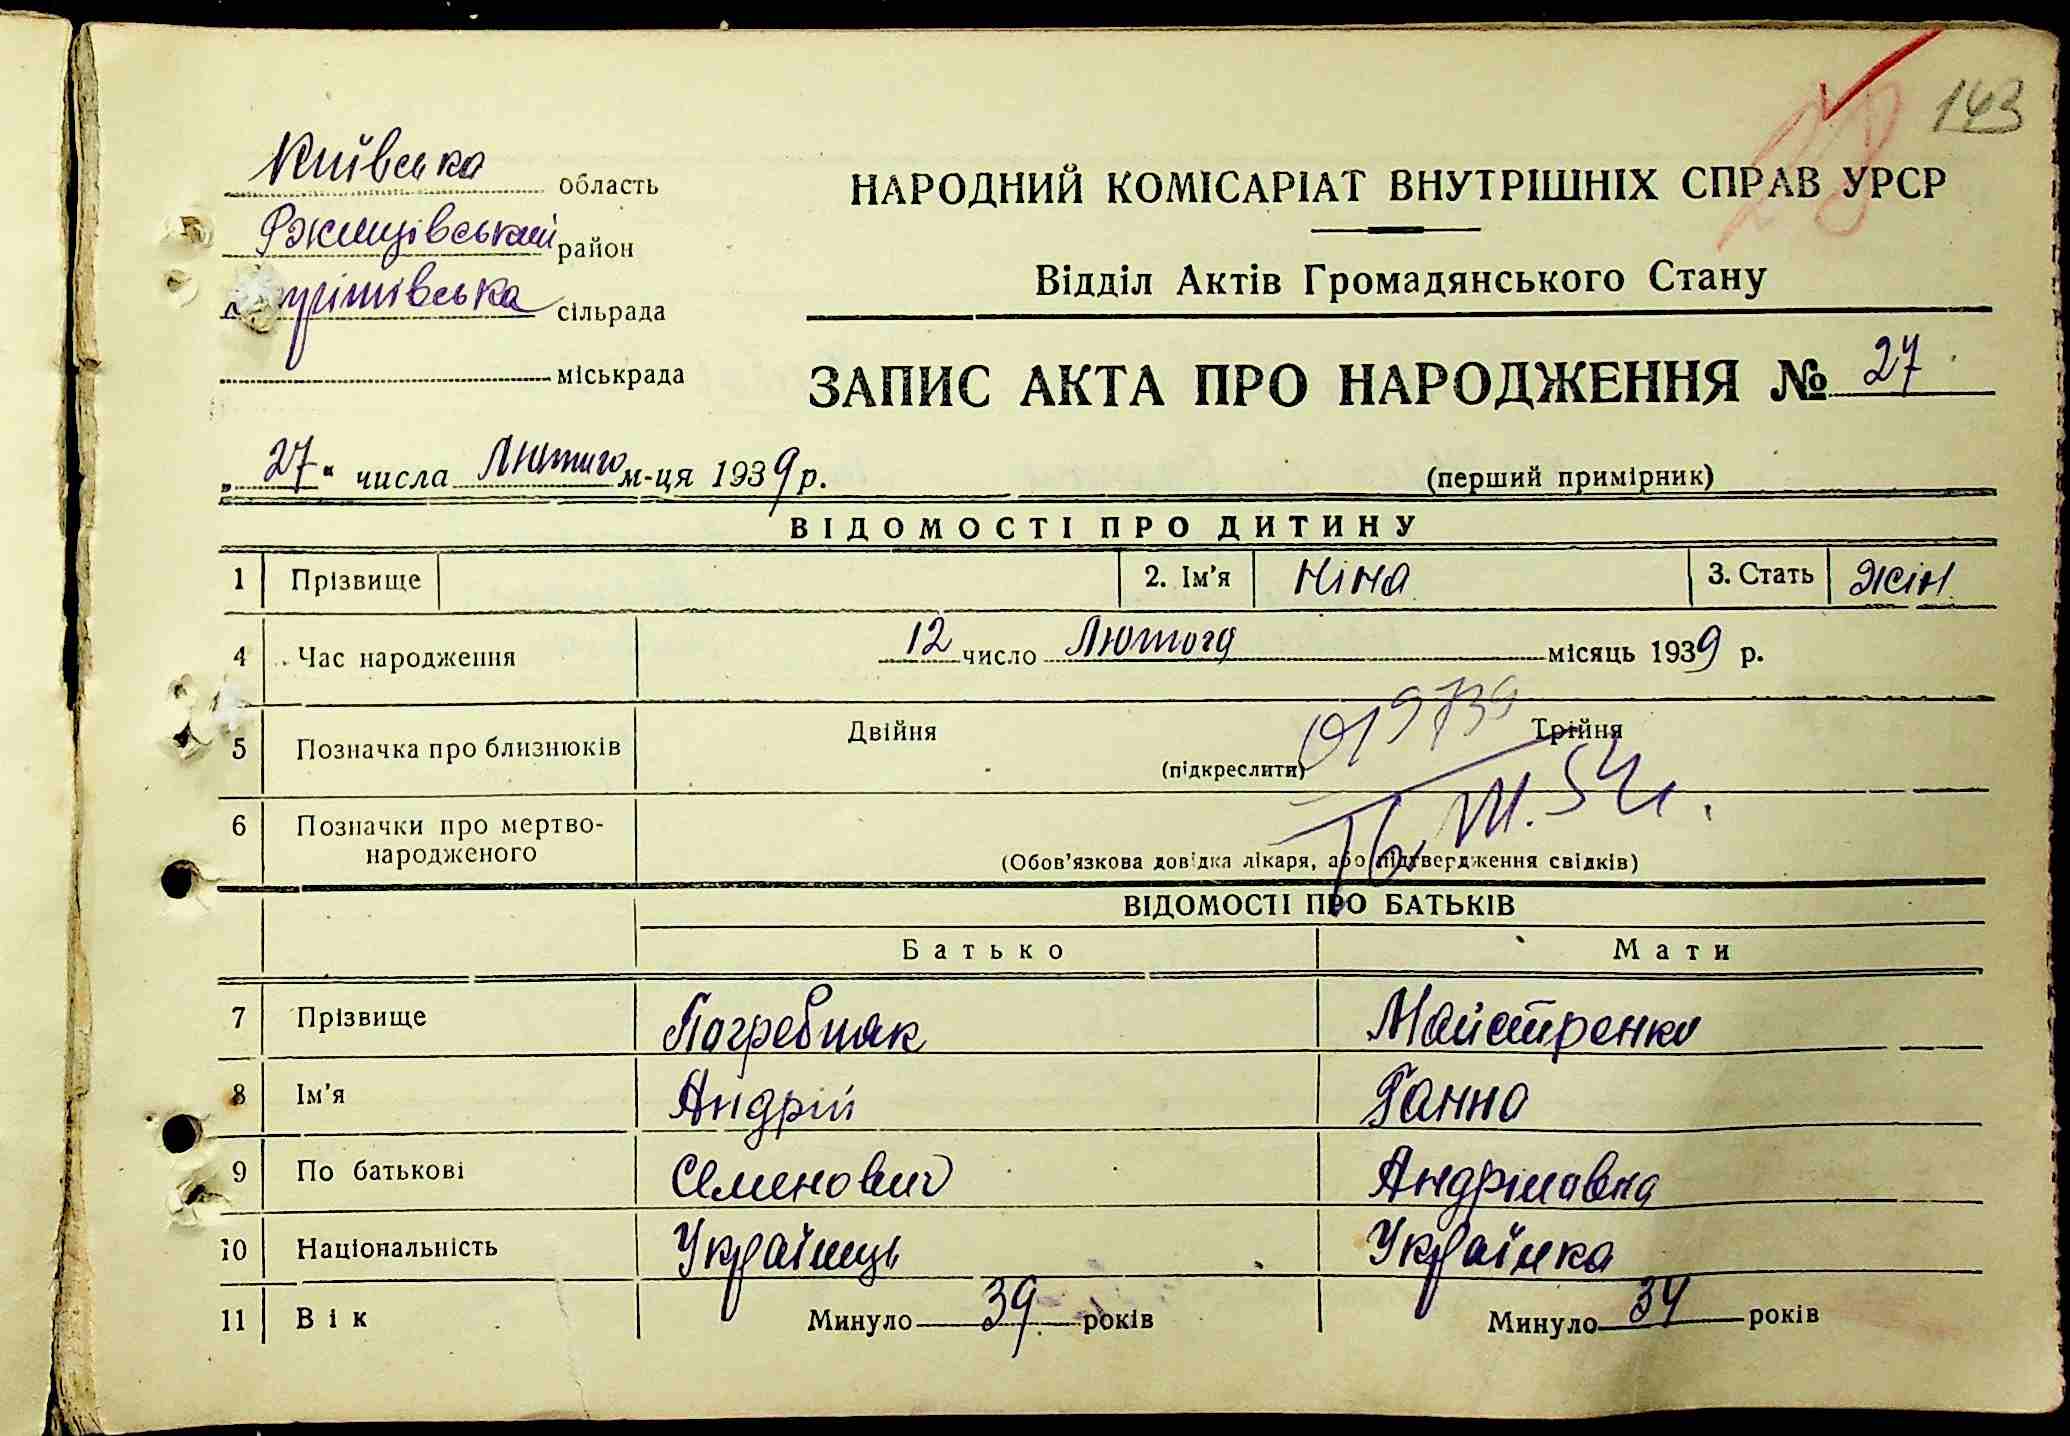 143
Київська область
Ржищівський район
сільрада
міськрада
НАРОДНИЙ КОМІСАРІАТ ВНУТРІШНІХ СПРАВ УРСР
Відділ Актів Громадянського Стану
ЗАПИС АКТА ПРО НАРОДЖЕННЯ № 27
„27“ числа Лютого м-ця 1939 р.
(перший примірник)
ВІДОМОСТІ ПРО ДИТИНУ
1 Прізвище 2. Ім'я Ніна 3. Стать жін.
4 Час народження 12 число Лютого місяць 1939 р.
5 Позначка про близнюків Двійня Трійня
(підкреслити)
6 Позначки про мертво-
народженого
(Обов'язкова довідка лікаря, або підтвердження свідків)
ВІДОМОСТІ ПРО БАТЬКІВ
Батько Мати
7 Прізвище Погребняк Майстренко
8 Ім'я Андрій Ганна
9 По батькові Семенович Андріївна
10 Національність Українець Українка
11 Вік Минуло 39 років Минуло 34 років